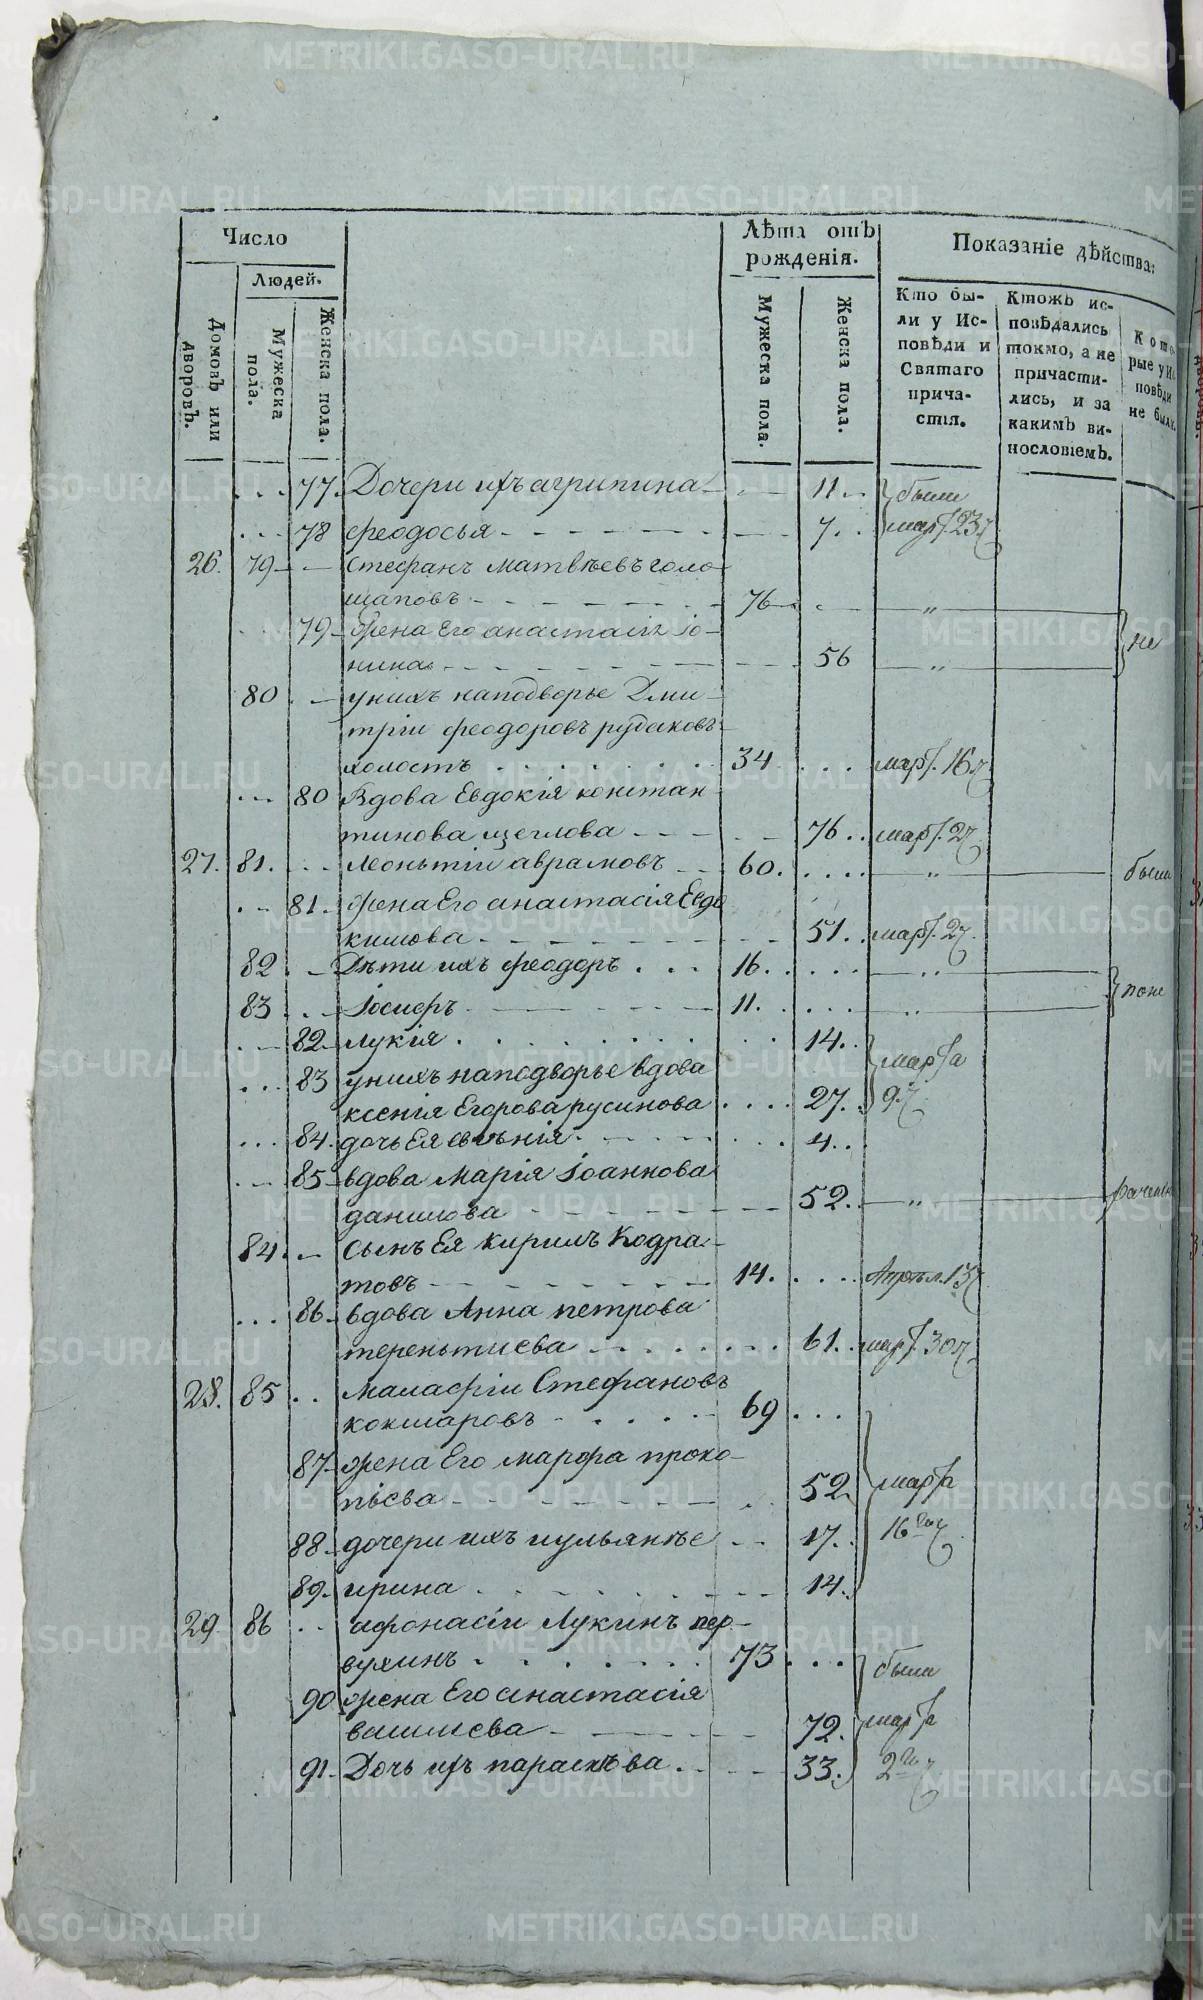 Число
Людей.
Лѣта отъ
рожденія.
Показаніе дѣйства:
Домовъ или
дворовъ.
Мужеска
пола.
Женска пола.
Мужеска пола.
Женска пола.
Кто бы-
ли у Ис-
повѣди и
Святаго
прича-
стія.
Ктожъ ис-
повѣдались
токмо, а не
причасти-
лись, и за
какимъ ви-
нословіемъ.
Кото-
рые у Ис
повѣди
не были.
77. Дочери ихъ агрипина 11 были
78 феодосья 7 мар. 23
26. 79 Стефанъ матвѣевъ голо
щаповъ 76 "
79 Жена Его анастасія іо-
нина 56 " не
80 у нихъ наподворье Дми-
тріи феодоровъ рудаковъ
холостъ 34 мар. 16
80 Вдова Евдокія констан
тинова щеглова 76 мар. 2
27. 81. леоньтіи аврамовъ 60. " были
81. Жена Его анастасія Евдо
кимова 51. мар. 2
82 Дѣти ихъ феодоръ 16. "
83 Іосифъ 11. " поне
82 лукія 14. марта
83 у нихъ наподворье вдова
ксенія Егорова русинова 27. 9
84. дочь Ея евгѣнія 4
85 вдова Марія Іоаннова
данилова 52. "
84. Сынъ Ея Кирилъ Кодра-
товъ 14. Апрѣл. 13
86. вдова Анна петрова
тереньтиева 61. мар. 30
28. 85 малафіи Стефановъ
кокшаровъ 69
87. жена Его марфа проко-
піева 52 марта
88. дочери ихъ иульянѣе 17. 16го
89. ирина 14.
29 86 афонасіи Лукинъ пер-
вухинъ 73 были
90 жена Его анастасія
василиева 72. марта
91. Дочь ихъ параскѣва 33. 2го
METRIKI.GASO-URAL.RU